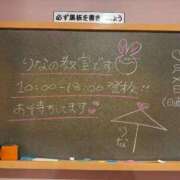 必ず黒板を書きましょう
りなの教室です
10:00-18:00 登校!!
お待ちしてます
りな